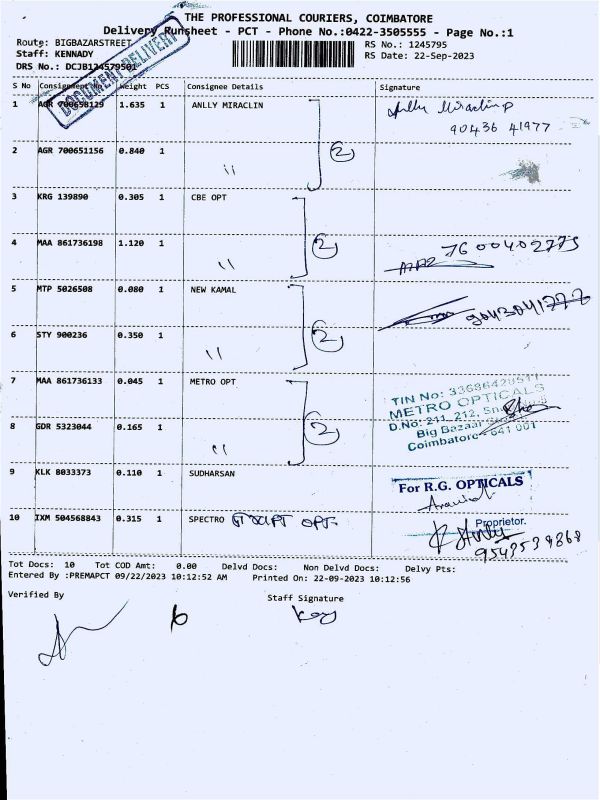 THE PROFESSIONAL COURIERS, COIMBATORE
Delivery Runsheet - PCT - Phone No.:0422-3505555 - Page No.:1
Route: BIGBAZARSTREET
RS No.: 1245795
Staff: KENNADY
RS Date: 22-Sep-2023
DRS No.: DCJB124579501
DOCUMENT DELIVERY
S No Consignment No Weight PCS Consignee Details Signature
1 AGR 700658129 1.635 1 ANLLY MIRACLIN
Anlly Miraclin
90436 41977
2 AGR 700651156 0.840 1 "
2
3 KRG 139890 0.305 1 CBE OPT
4 MAA 861736198 1.120 1 "
2
7600402775
5 MTP 5026508 0.080 1 NEW KAMAL
9043041777
6 STY 900236 0.350 1 "
2
7 MAA 861736133 0.045 1 METRO OPT
TIN No:
METRO OPTICALS
D.No: 211, 212,
Big Bazaar
Coimbatore - 641 001
8 GDR 5323044 0.165 1 "
2
9 KLK 8033373 0.110 1 SUDHARSAN
For R.G. OPTICALS
Proprietor.
10 IXM 504568843 0.315 1 SPECTRO OPT.
Tot Docs: 10 Tot COD Amt: 0.00 Delvd Docs: Non Delvd Docs: Delvy Pts:
Entered By :PREMAPCT 09/22/2023 10:12:52 AM Printed On: 22-09-2023 10:12:56
Verified By Staff Signature